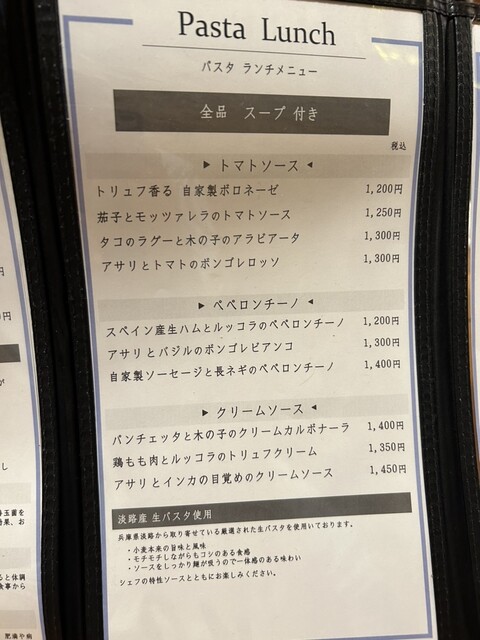 Pasta Lunch
パスタ ランチメニュー
全品 スープ 付き
税込
▶ トマトソース ◀
トリュフ香る 自家製ボロネーゼ 1,200円
茄子とモッツァレラのトマトソース 1,250円
タコのラグーと木の子のアラビアータ 1,300円
アサリとトマトのボンゴレロッソ 1,300円
▶ ペペロンチーノ ◀
スペイン産生ハムとルッコラのペペロンチーノ 1,200円
アサリとバジルのボンゴレビアンコ 1,300円
自家製ソーセージと長ネギのペペロンチーノ 1,400円
▶ クリームソース ◀
パンチェッタと木の子のクリームカルボナーラ 1,400円
鶏もも肉とルッコラのトリュフクリーム 1,350円
アサリとインカの目覚めのクリームソース 1,450円
淡路産 生パスタ使用
兵庫県淡路から取り寄せている厳選された生パスタを使用いております。
・小麦本来の旨味と風味
・モチモチしながらもコシのある食感
・ソースをしっかり麺が吸うので一体感のある味わい
シェフの特性ソースとともにお楽しみください。